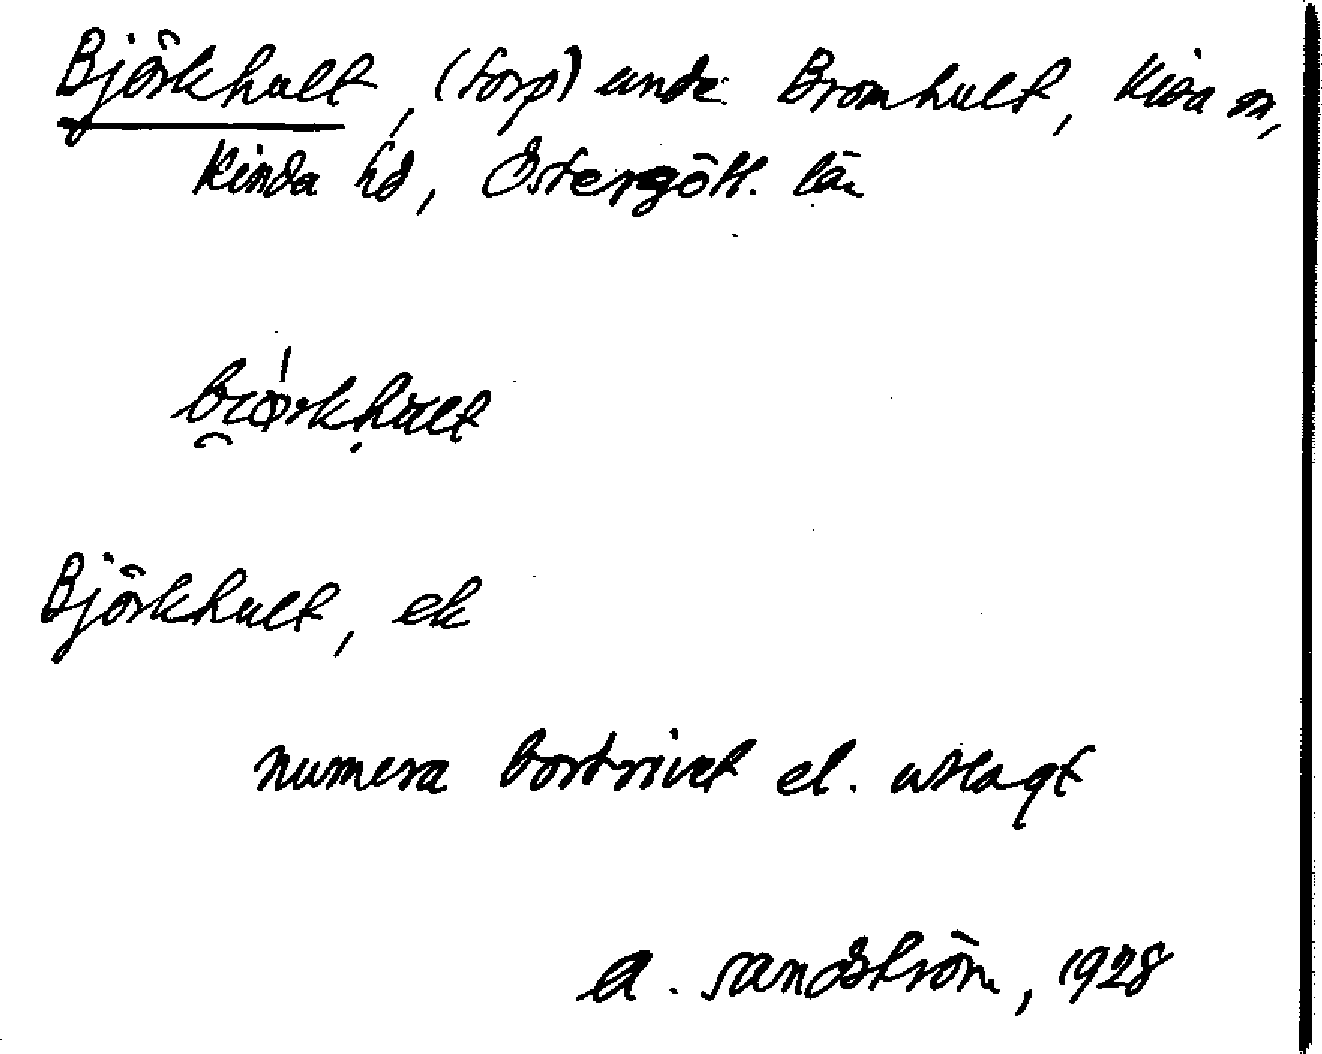 Björkhult, (torp) under Bromhult, Kisa sn,
Kinda hd, Östergötl. län
bi̯ø̍rkḥult
Björkhult, ek
numera bortrivet el. utlagt
A. Sandström, 1928